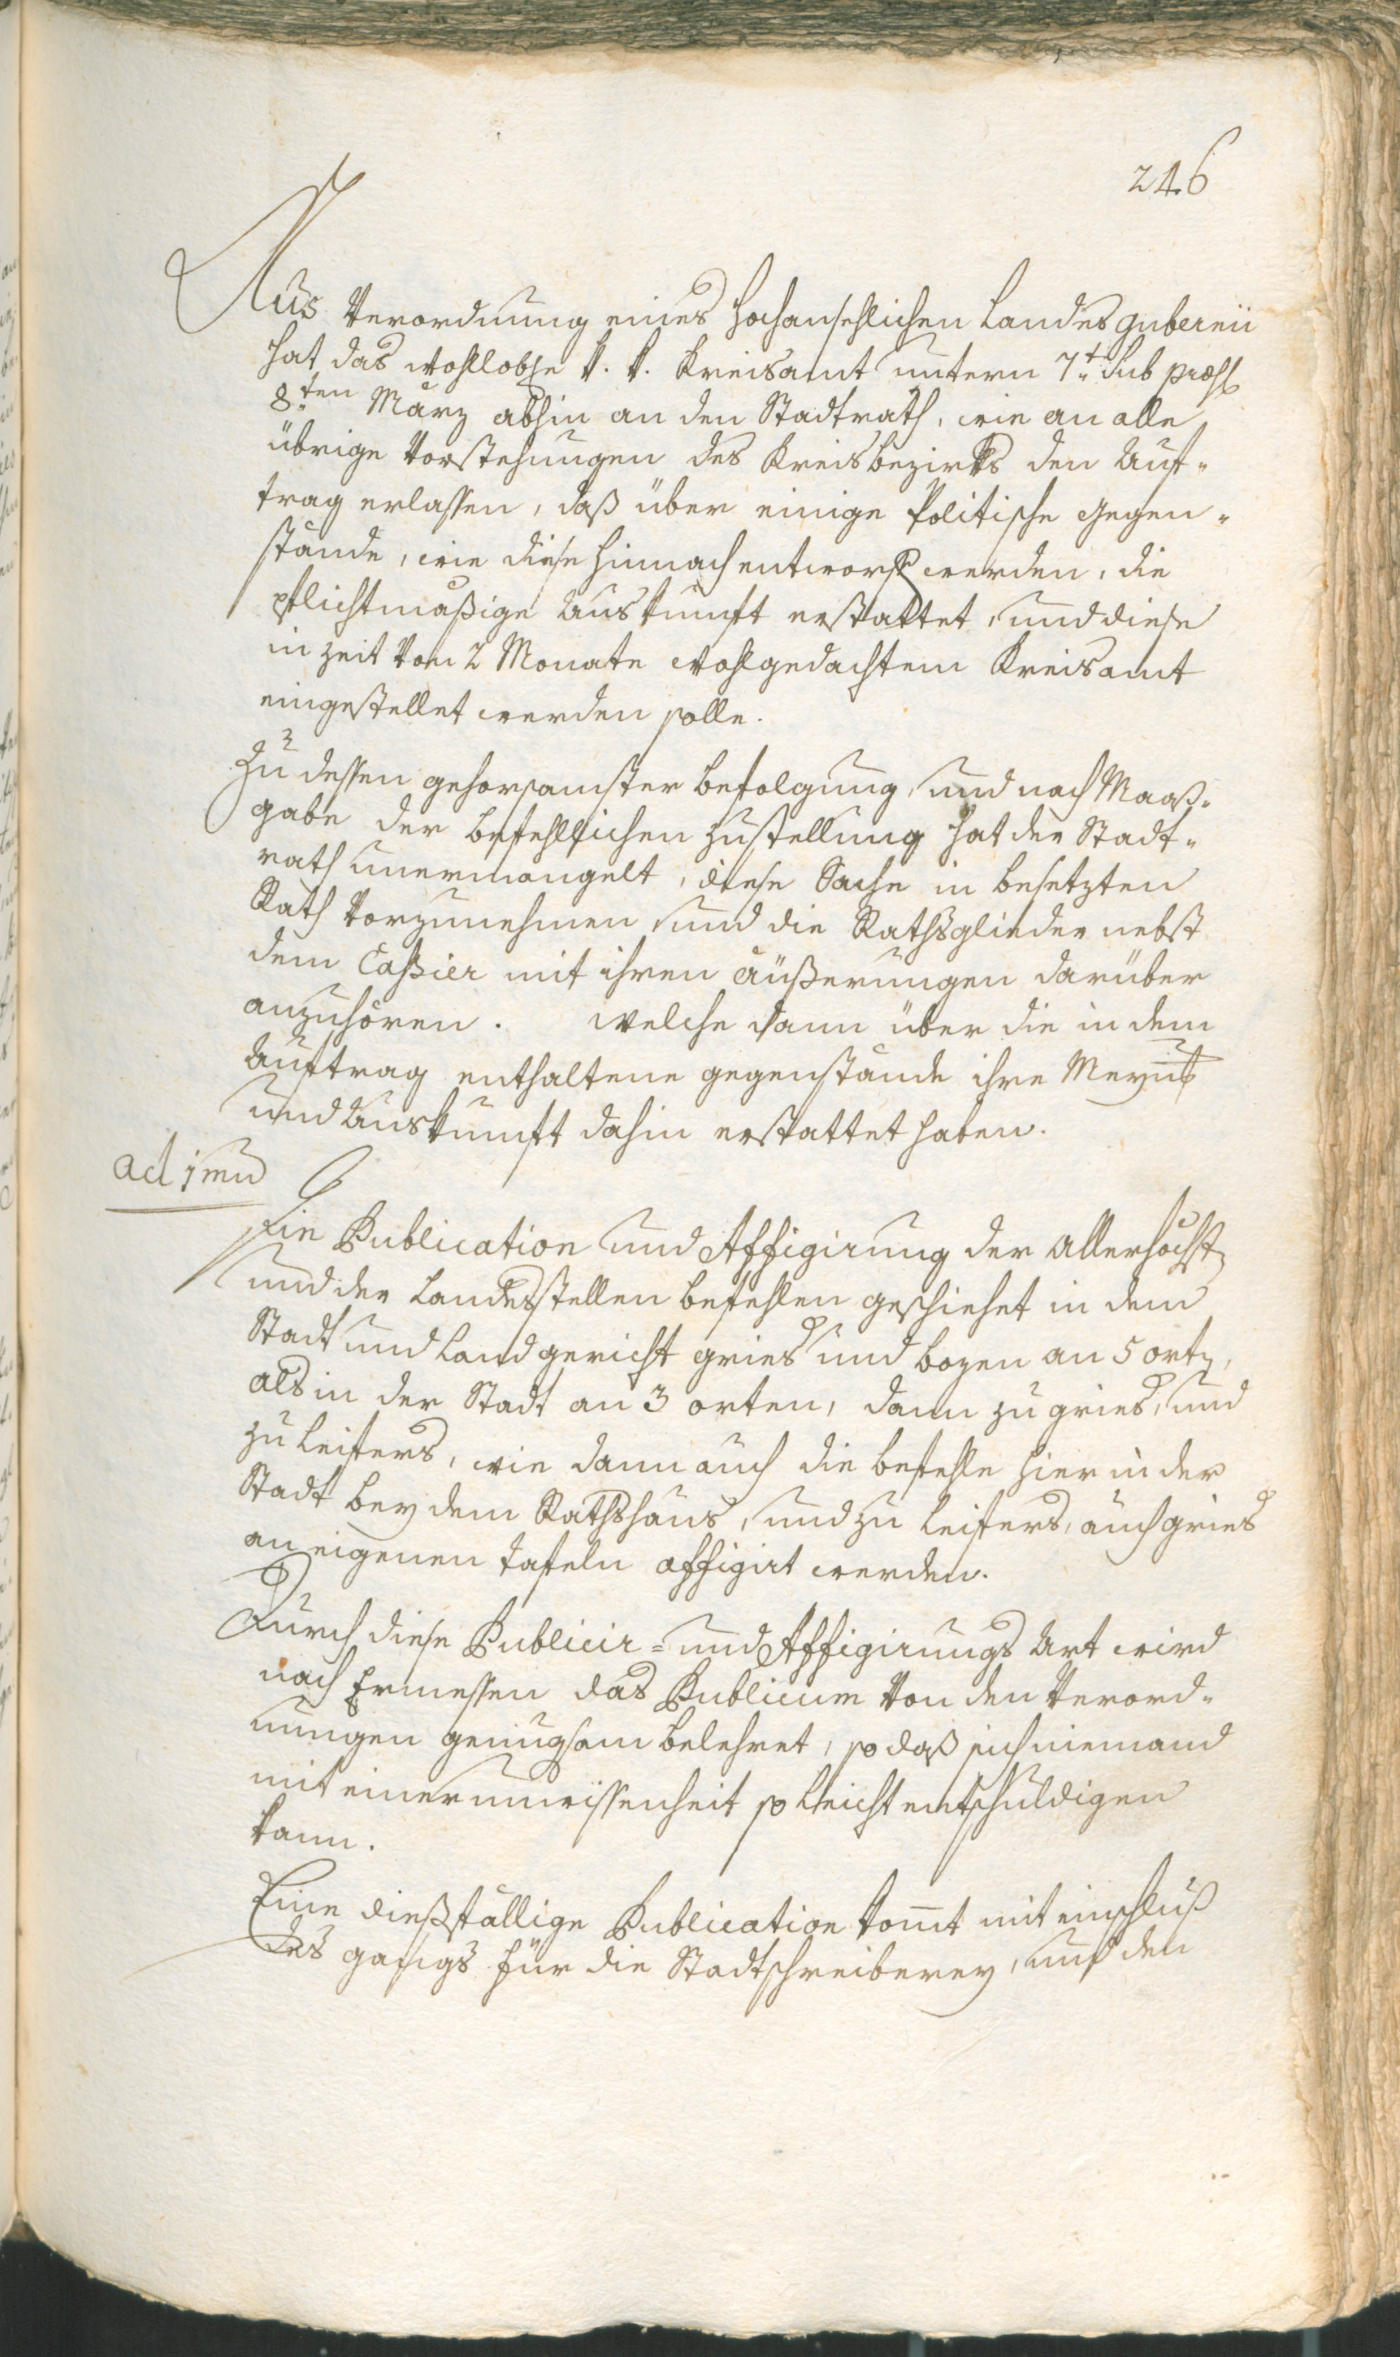 246
Aus Verordnung eines Hochansehlichen Landes Gubernii
hat das wohllobhe k. k. Kreisamt untern 7t. sub præs
8.ten März abhin an den Stadtrath, wie an alle
übrige Vorstehungen des Kreisbezirks den Auf-
trag erlassen, daß über einige Politische Gegen-
stände, wie diese hinnach entworf werden, die
pflichtmäßige Auskunft erstattet, und diese
in zeit von 2 Monate wohlgedachtem Kreisamt
eingestellet werden solle.
Zu dessen gehorsamster befolgung, und nach Maaß-
gabe der befehllichen Zustellung hat der Stadt-
rath unermangelt, diese Sache in besetzten
Rath vorzunehmen, und die Rathsglieder nebst
dem Cassier mit ihren äußerungen darüber
anzuhören. Welche dann über die in dem
Auftrag enthaltene gegenstände ihre Meynug
und Auskunft dahin erstattet haben.
ad 1mu
Die Publication und Affigirung der Allerhöchst
und der Landesstellen befehlen geschiehet in dem
Stadt und Landgericht gries und bozen an 5 orten,
als in der Stadt an 3 orten, dann zu gries, und
zu Leifers, wie dann auch die befehle hier in der
Stadt bey dem Rathshaus, und zu Leifers, auch gries
an eigenen tafeln affigirt werden.
Durch diese Publicir- und Affigirungs Art wird
nach Ermessen das Publicum von den Verord-
nungen genugsam belehret, so daß sich niemand
mit einer unwissenheit so leicht entschuldigen
kann.
Eine dießfällige Publication komt mit einschluß
des für die Stadtschreiberey, und den